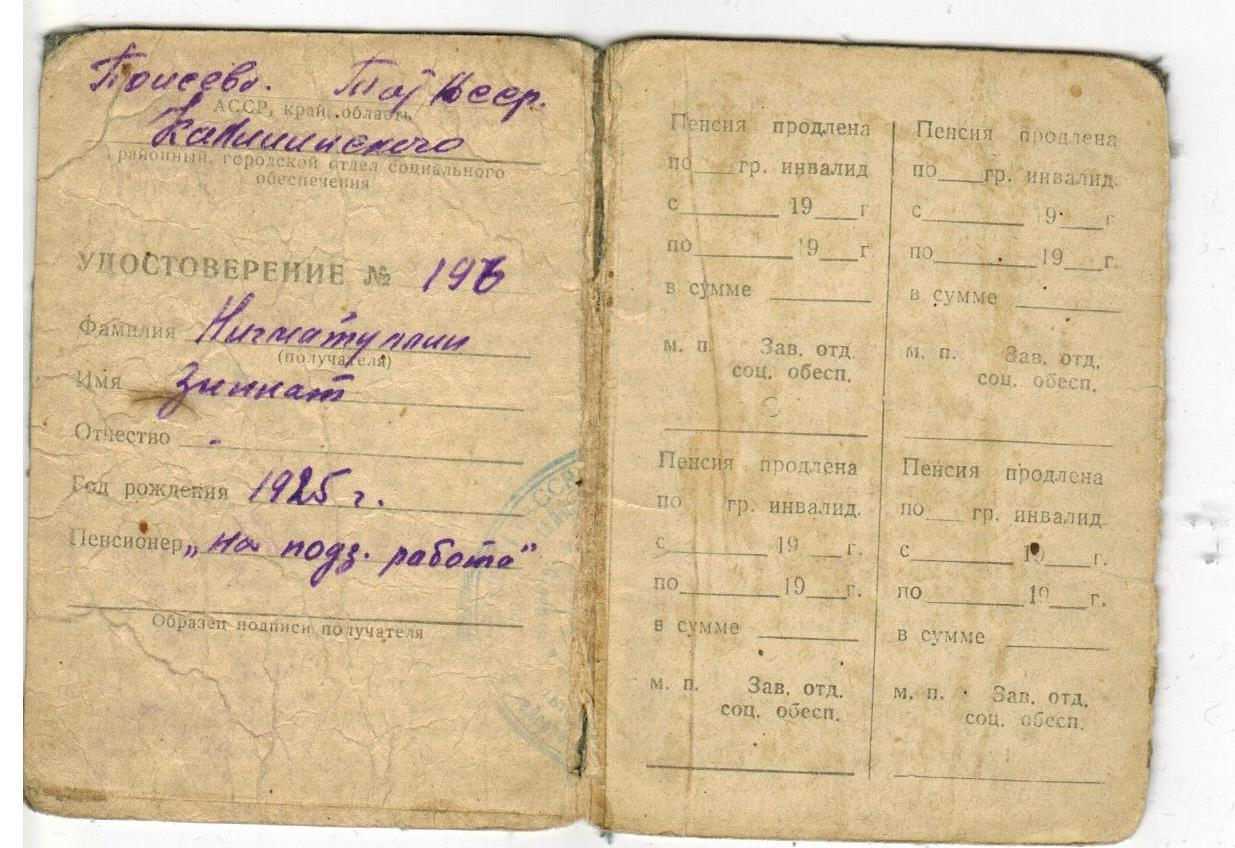 Поисево. Тат АССР.
АССР, край, область
Калининского
районный, городской отдел социального
обеспечения
УДОСТОВЕРЕНИЕ № 196
Фамилия Нигматуллин
(получателя)
Имя Зиннат
Отчество
Год рождения 1925 г.
Пенсионер „на подз. работа"
Образец подписи получателя
Пенсия продлена
по___гр. инвалид
с________ 19___г
по________ 19___г
в сумме ________
м. п. Зав. отд.
соц. обесп.
Пенсия продлена
по___гр. инвалид.
с________ 19___г
по________ 19___г.
в сумме ________
м. п. Зав. отд.
соц. обесп.
Пенсия продлена
по гр. инвалид.
с________ 19___г.
по________ 19___г.
в сумме ________
м. п. Зав. отд.
соц. обесп.
Пенсия продлена
по___ гр. инвалид.
с________ 19___г.
по________ 19___г.
в сумме ________
м. п. Зав. отд.
соц. обесп.